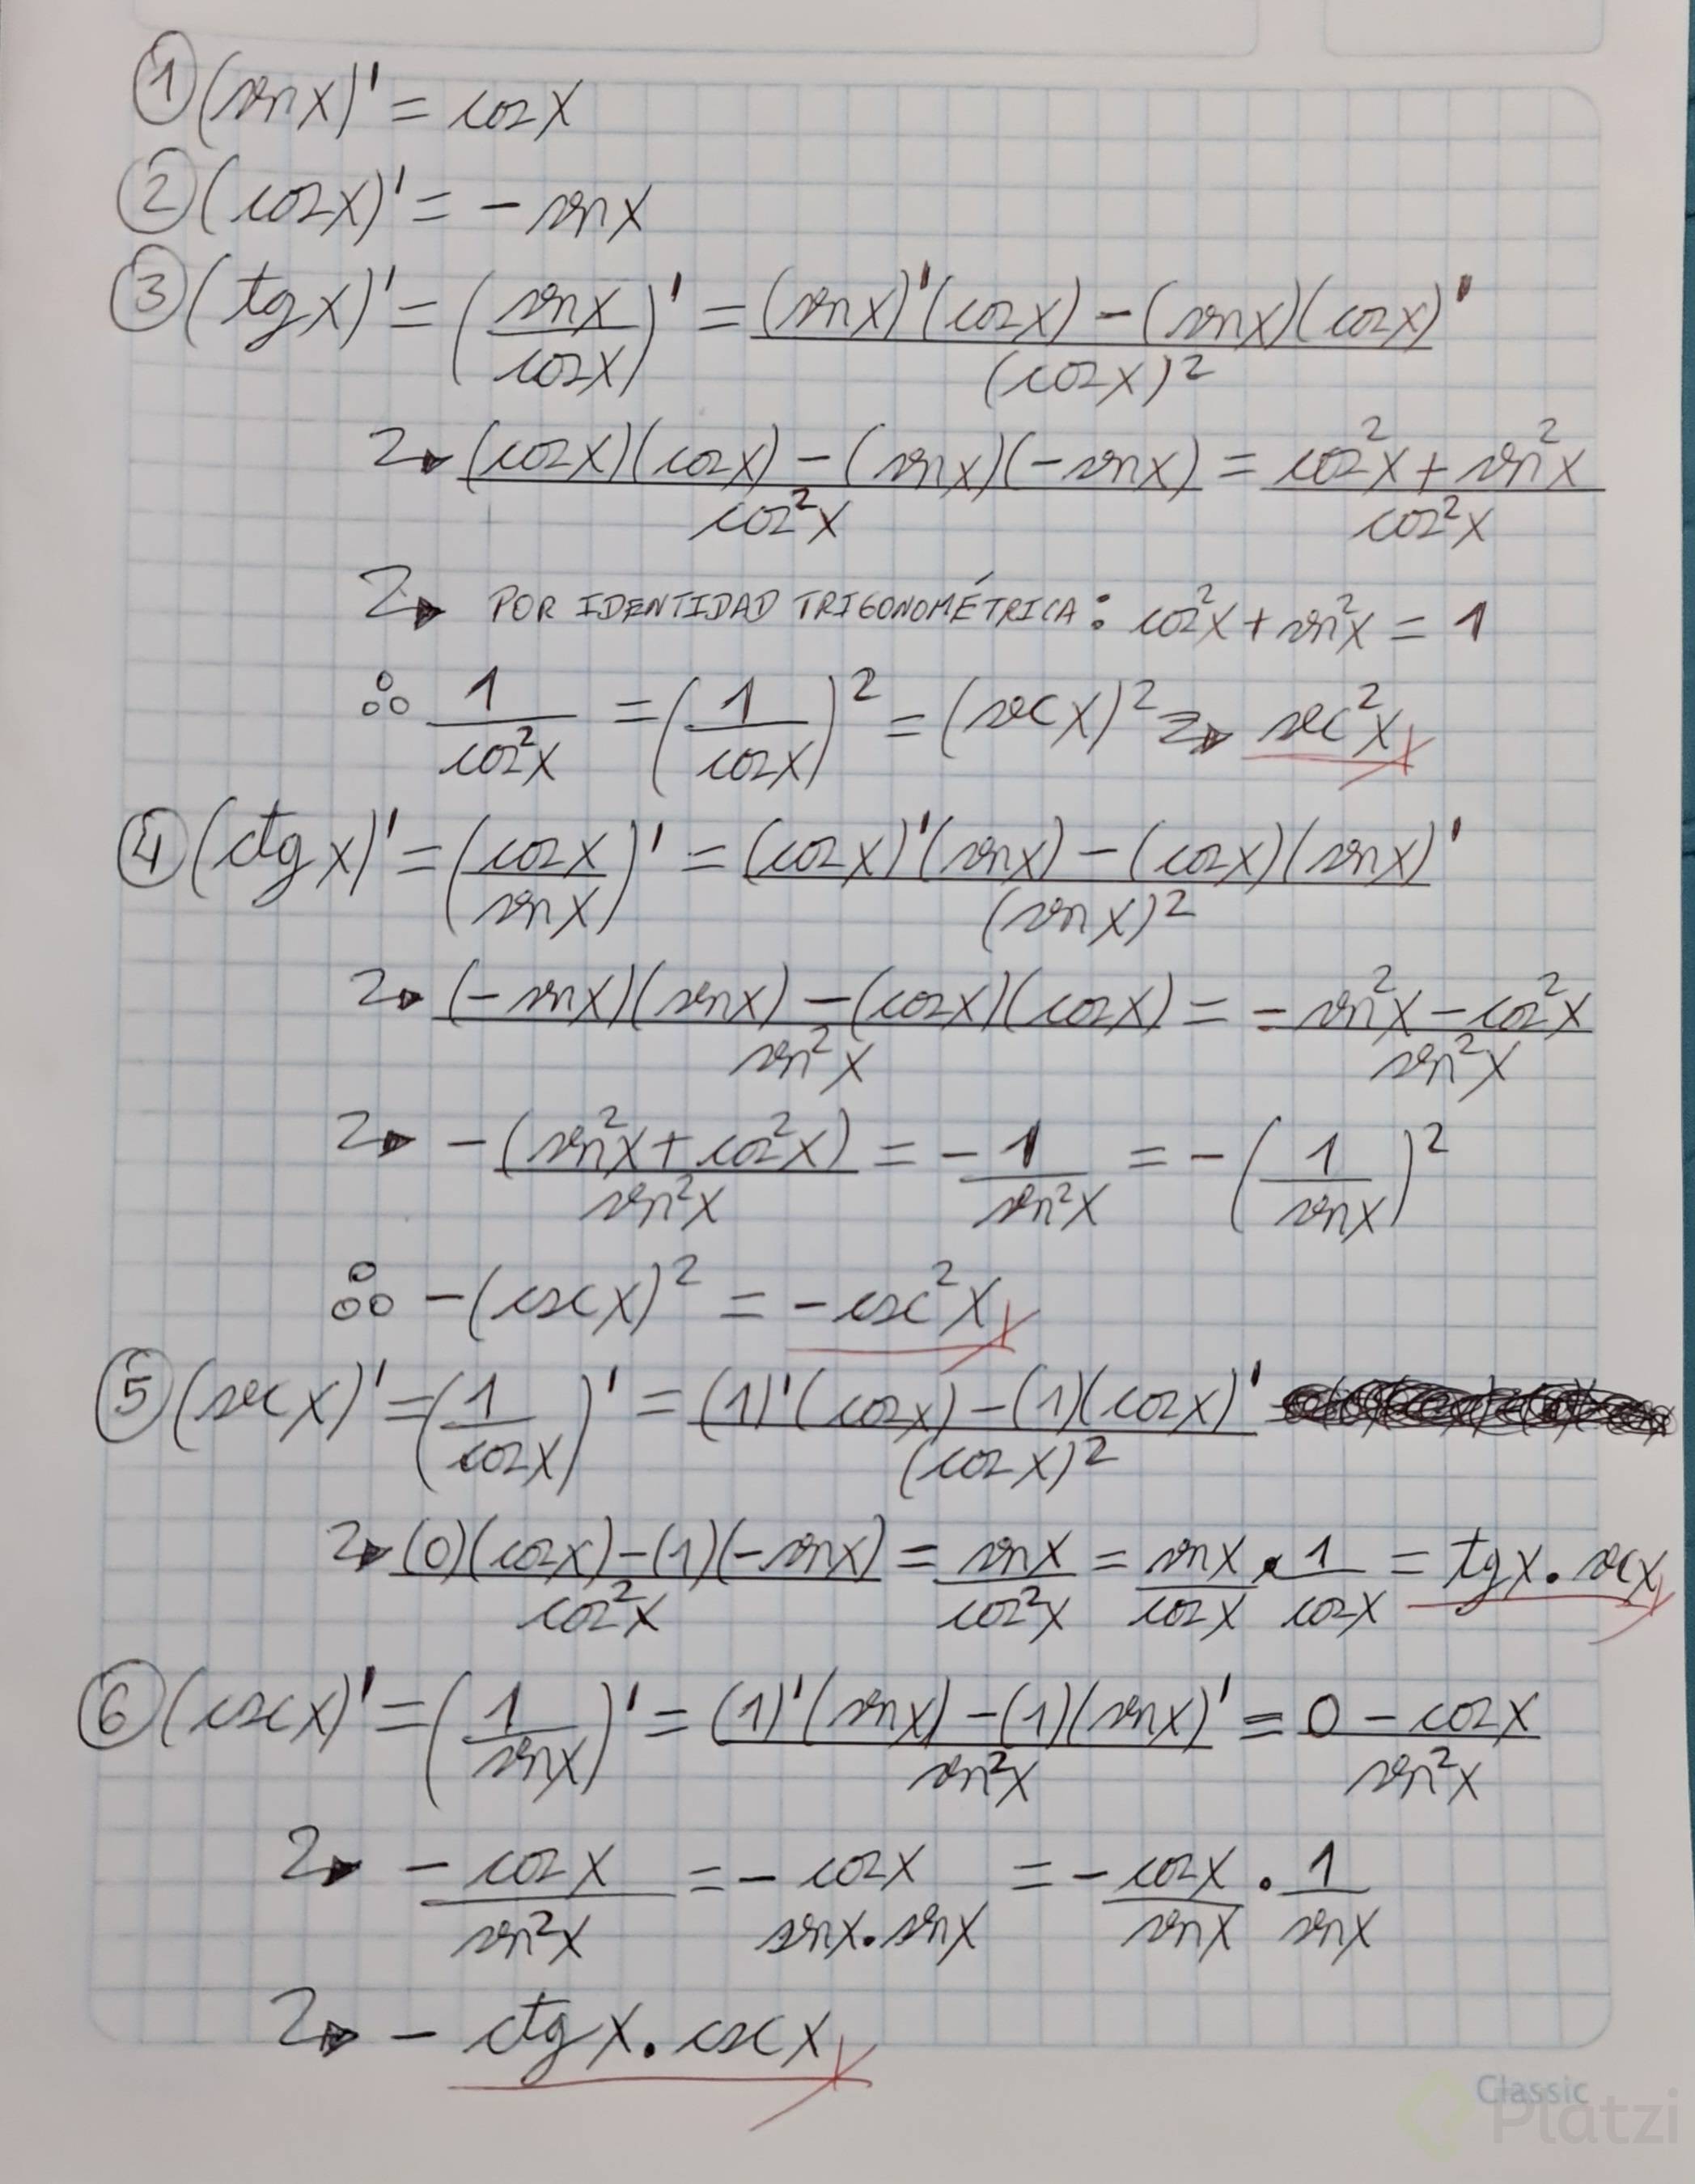 ① (sen x)' = cos x
② (cos x)' = - sen x
③ (tg x)' = (sen x / cos x)' = (sen x)'(cos x) - (sen x)(cos x)' / (cos x)²
⇒ (cos x)(cos x) - (sen x)(-sen x) / cos²x = cos²x + sen²x / cos²x
⇒ POR IDENTIDAD TRIGONOMÉTRICA: cos²x + sen²x = 1
∴ 1 / cos²x = (1 / cos x)² = (sec x)² ⇒ sec²x
④ (ctg x)' = (cos x / sen x)' = (cos x)'(sen x) - (cos x)(sen x)' / (sen x)²
⇒ (-sen x)(sen x) - (cos x)(cos x) / sen²x = - sen²x - cos²x / sen²x
⇒ - (sen²x + cos²x) / sen²x = - 1 / sen²x = - (1 / sen x)²
∴ - (csc x)² = - csc²x
⑤ (sec x)' = (1 / cos x)' = (1)'(cos x) - (1)(cos x)' / (cos x)²
⇒ (0)(cos x) - (1)(-sen x) / cos²x = sen x / cos²x = sen x / cos x · 1 / cos x = tg x · sec x
⑥ (csc x)' = (1 / sen x)' = (1)'(sen x) - (1)(sen x)' / sen²x = 0 - cos x / sen²x
⇒ - cos x / sen²x = - cos x / sen x · sen x = - cos x / sen x · 1 / sen x
⇒ - ctg x · csc x
Classic
Platzi